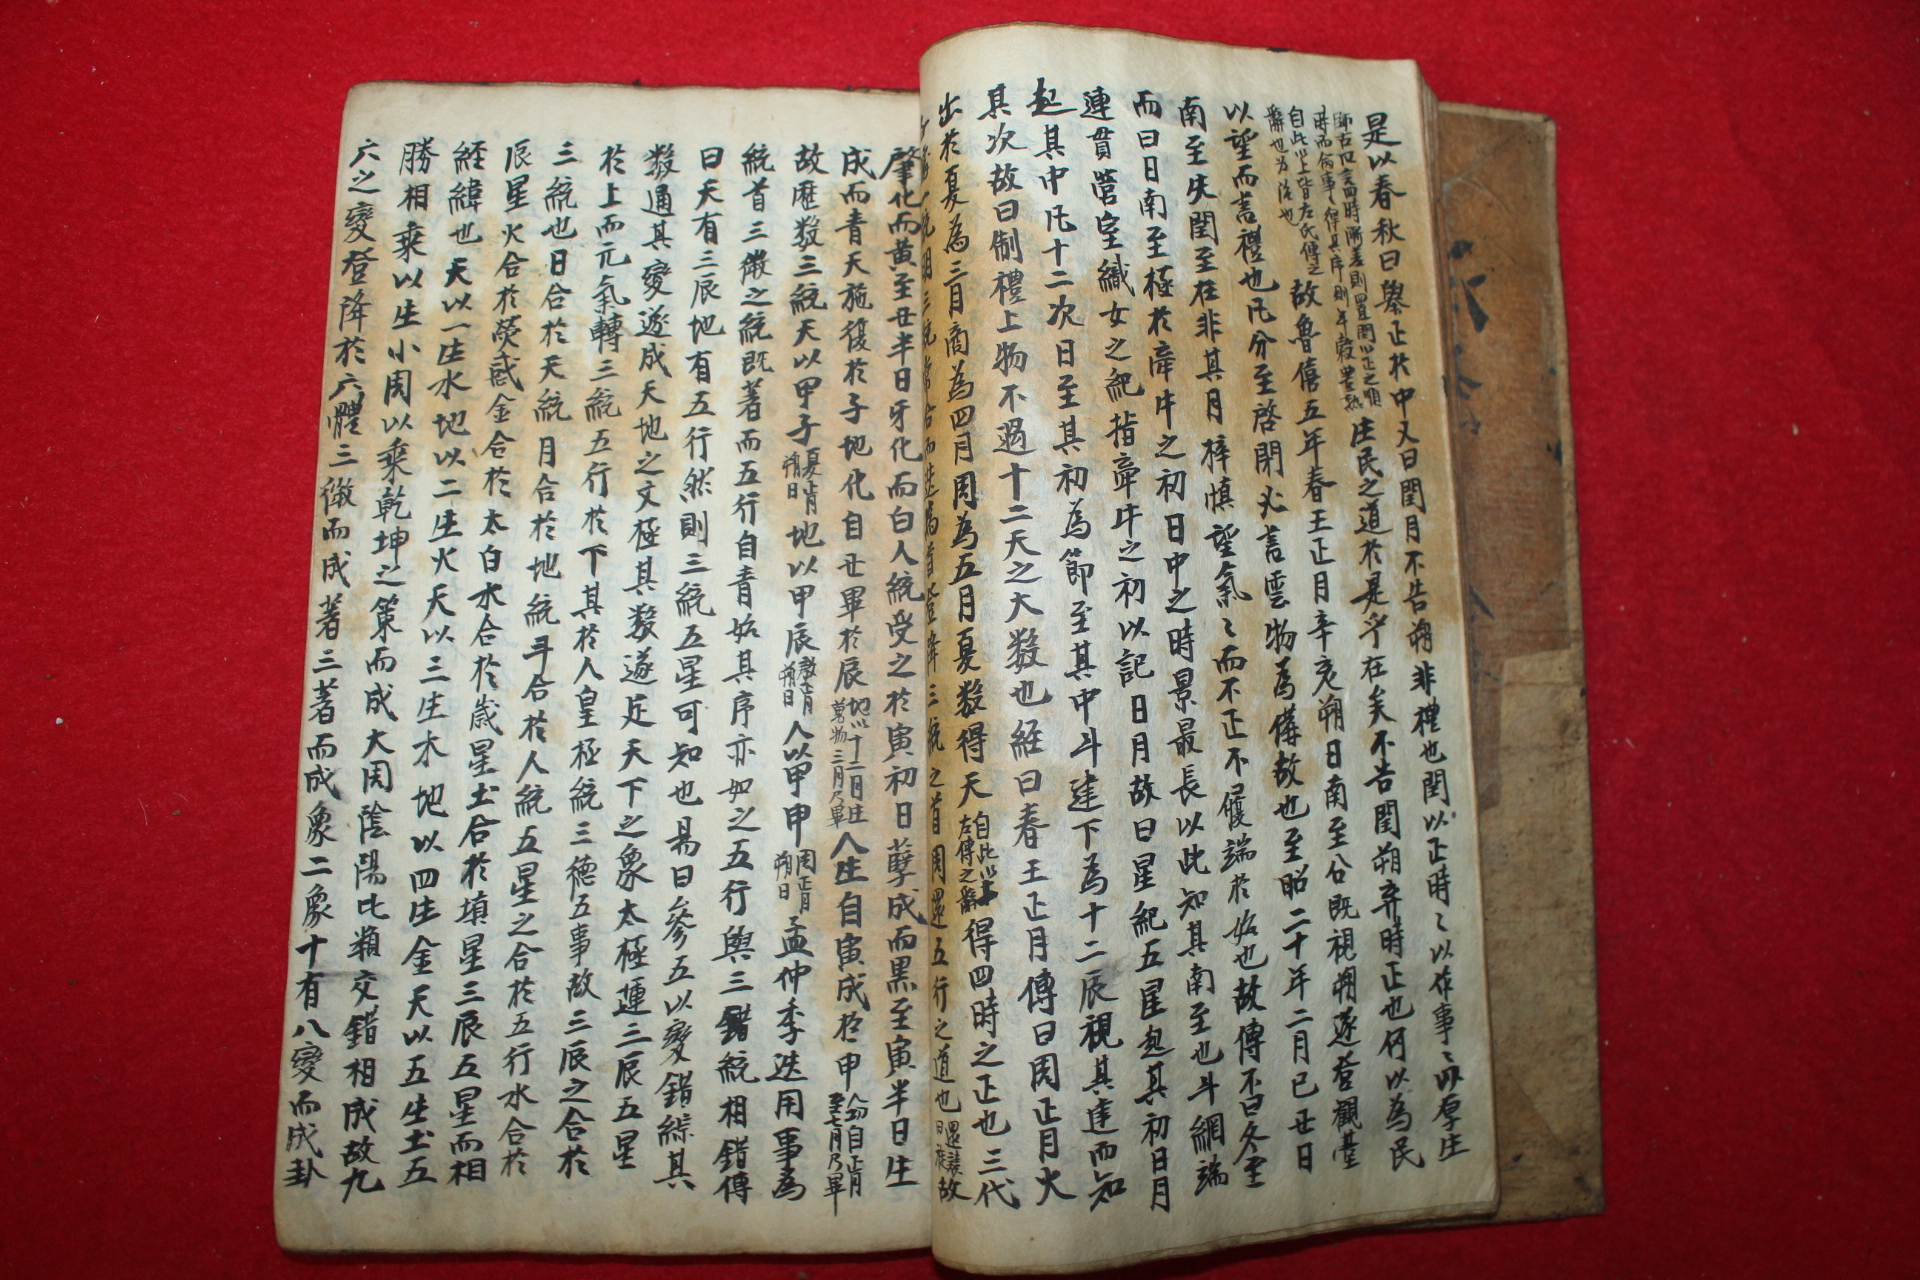 是以春秋曰舉正於中又曰閏月不告朔非禮也閏以正時〻以作事〻以厚生
師古曰言四時漸差則置閏以正之順
時而命事〻得其序則年穀豊熟
生民之道於是乎在矣不告閏朔弃時正也何以為民
自此以上皆左氏傳之
辭也为治也
故魯僖五年春王正月辛亥朔日南至公既視朔遂登觀臺
以望而書禮也凡分至啓閉必書雲物為備故也至昭二十年二月己丑日
南至失閏至在非其月梓慎望氛〻而不正不履端於始也故傳不曰冬至
而曰日南至極於牽牛之初日中之時景最長以此知其南至也斗綱端
連貫營室織女之紀指牽牛之初以記日月故曰星紀五星起其初日月
起其中凡十二次日至其初為節至其中斗建下為十二辰視其建而知
其次故曰制禮上物不過十二天之大數也經曰春王正月傳曰周正月火
出於夏為三月商為四月周為五月夏數得天
自此以上
左傳之辭
得四時之正也三代
一統明三統常合而迭為首登降三統之首周還五行之道也
故
肇化而黃至丑半日牙化而白人統受之於寅初日孽成而黑至寅半日生
成而青天施復於子地化自丑畢於辰
地以十二月生
萬物三月乃畢
人生自寅成於申
人功自正月
至七月乃畢
故歷數三統天以甲子
夏正月
朔日
地以甲辰
殷正月
朔日
人以甲申
周正月
朔日
孟仲季迭用事為
統首三微之統既著而五行自青始其序亦如之五行與三錯統相錯傳
曰天有三辰地有五行然則三統五星可知也易曰參五以變錯綜其
數通其變遂成天地之文極其數遂定天下之象太極運三辰五星
於上而元氣轉三統五行於下其於人皇極統三德五事故三辰之合於
三統也日合於天統月合於地統斗合於人統五星之合於五行水合於
辰星火合於熒惑金合於太白水合於歲星土合於填星三辰五星而相
經緯也天以一生水地以二生火天以三生木地以四生金天以五生土五
勝相乘以生小周以乘乾坤之策而成大周陰陽比類交錯相成故九
六之變登降於六體三微而成著三著而成象二象十有八變而成卦